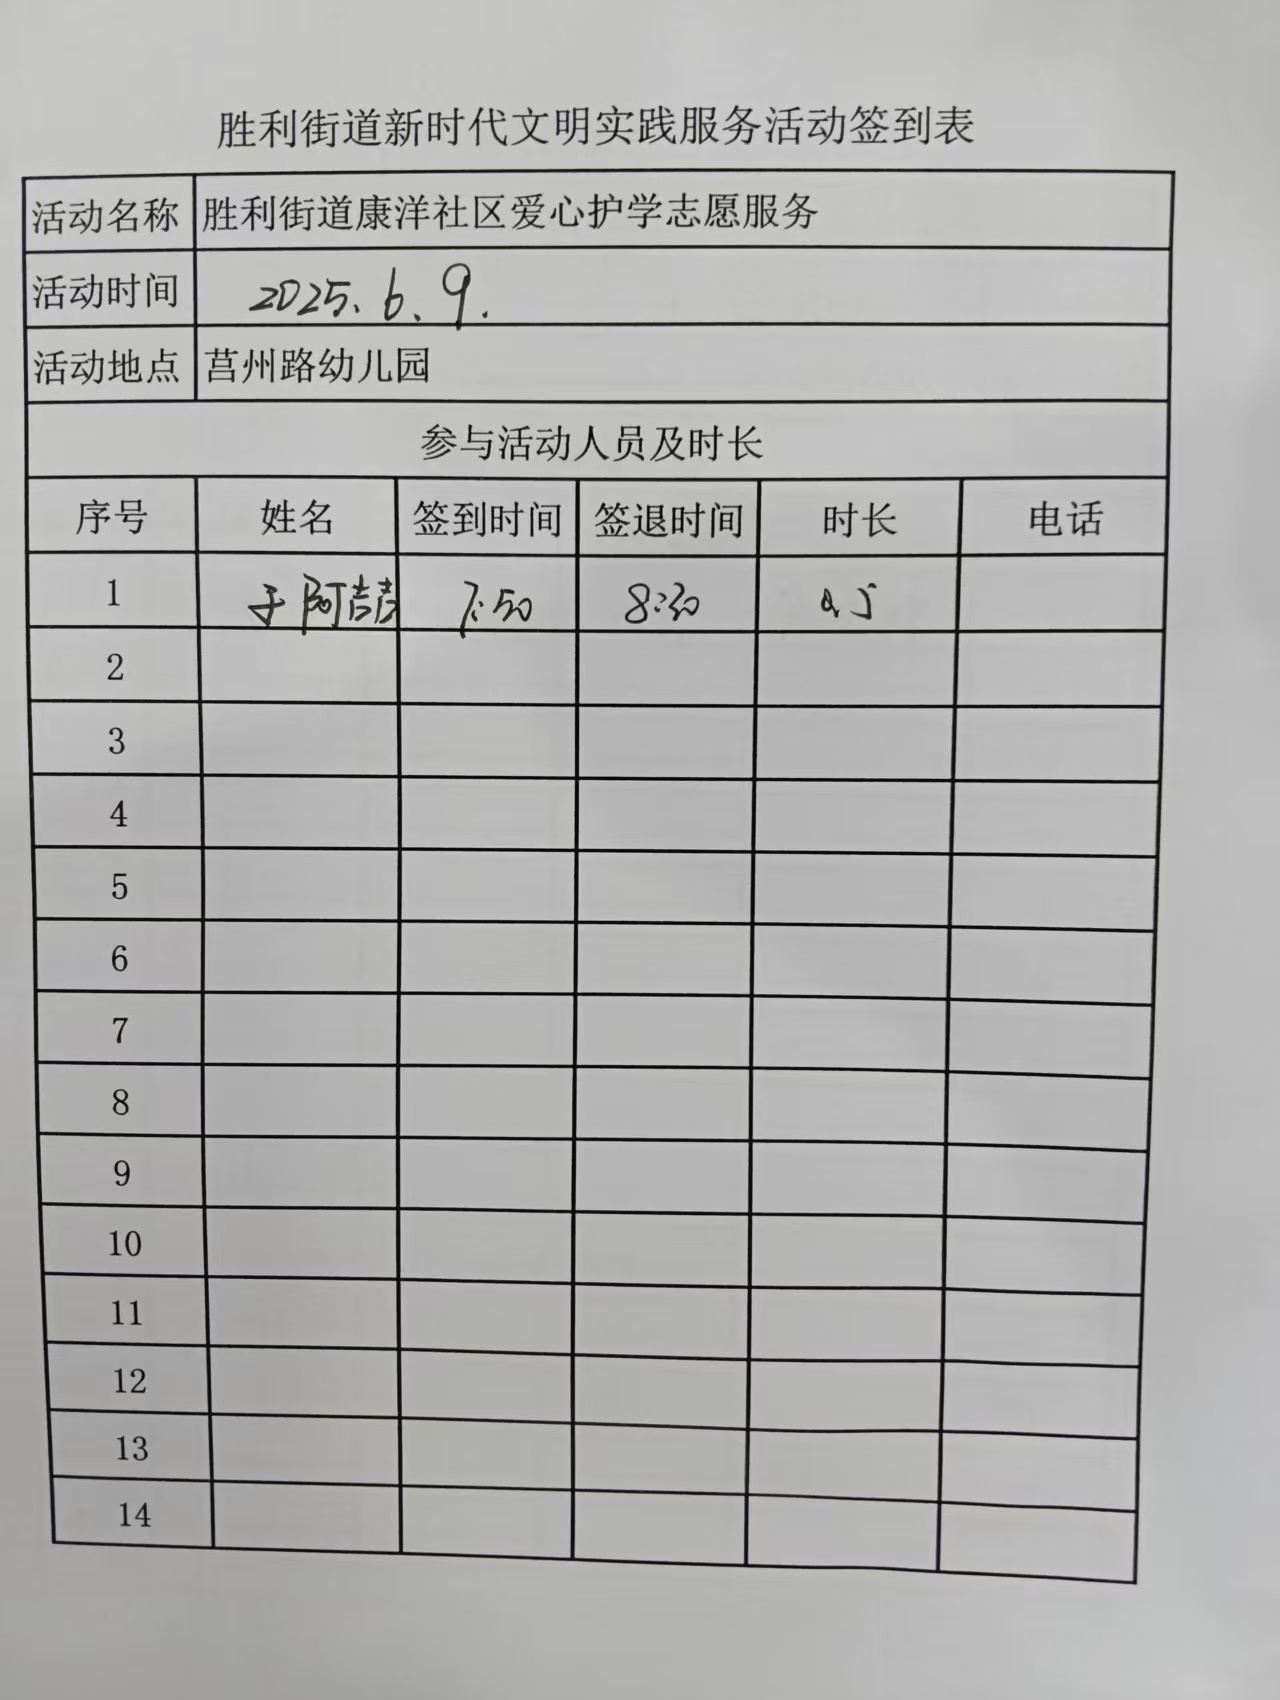 胜利街道新时代文明实践服务活动签到表
活动名称 胜利街道康洋社区爱心护学志愿服务
活动时间 2025.6.9.
活动地点 莒州路幼儿园
参与活动人员及时长
序号 姓名 签到时间 签退时间 时长 电话
1 于阿喆 7:50 8:30 0.5
2
3
4
5
6
7
8
9
10
11
12
13
14